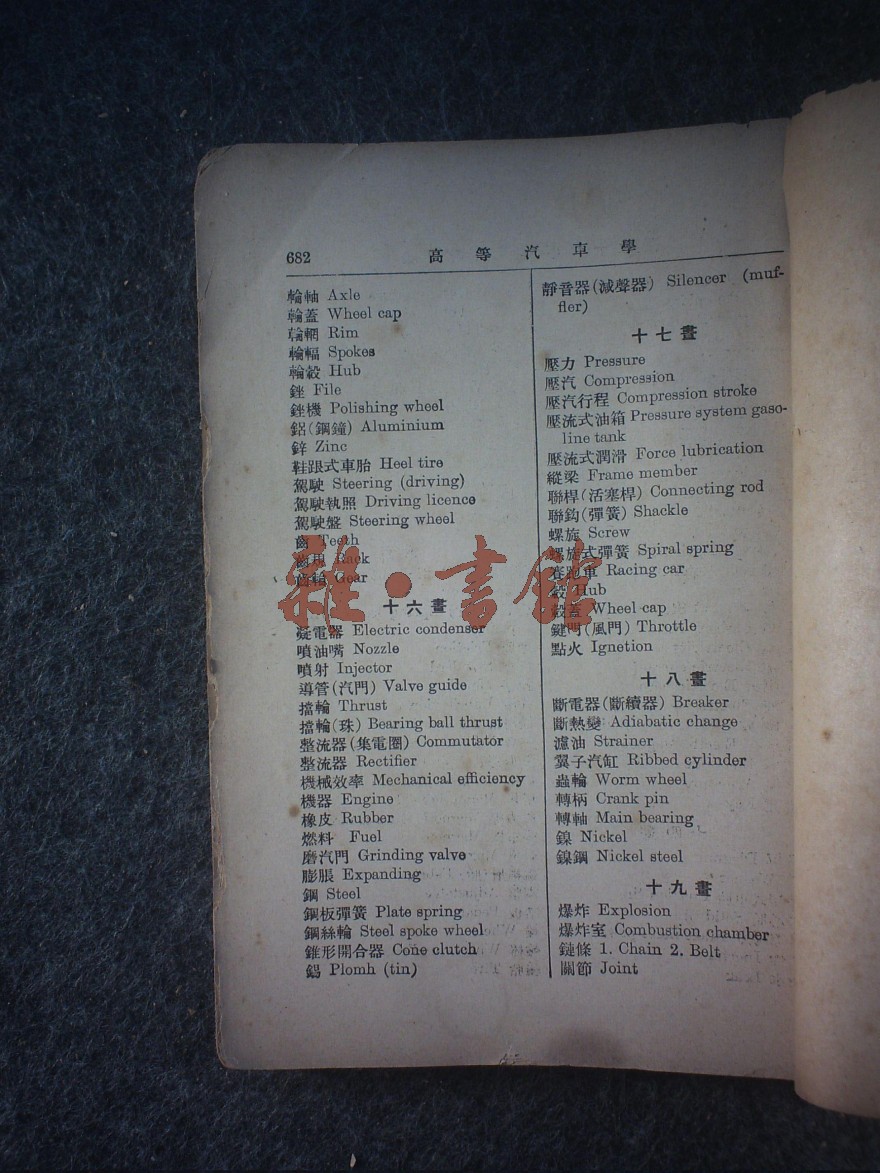 682
高等汽車學
輪軸 Axle
輪蓋 Wheel cap
輪輞 Rim
輪輻 Spokes
輪轂 Hub
銼 File
銼機 Polishing wheel
鋁(鋼鐘) Aluminium
鋅 Zinc
鞋跟式車胎 Heel tire
駕駛 Steering (driving)
駕駛執照 Driving licence
駕駛盤 Steering wheel
齒 Teeth
Rack
齒輪 Gear
十六畫
凝電器 Electric condenser
噴油嘴 Nozzle
噴射 Injector
導管(汽門) Valve guide
擋輪 Thrust
擋輪(珠) Bearing ball thrust
整流器(集電圈) Commutator
整流器 Rectifier
機械效率 Mechanical efficiency
機器 Engine
橡皮 Rubber
燃料 Fuel
磨汽門 Grinding valve
膨脹 Expanding
鋼 Steel
鋼板彈簧 Plate spring
鋼絲輪 Steel spoke wheel
錐形開合器 Cone clutch
錫 Plomh (tin)
靜音器(減聲器) Silencer (muf-
fler)
十七畫
壓力 Pressure
壓汽 Compression
壓汽行程 Compression stroke
壓流式油箱 Pressure system gaso-
line tank
壓流式潤滑 Force lubrication
縱梁 Frame member
聯桿(活塞桿) Connecting rod
聯鈎(彈簧) Shackle
螺旋 Screw
螺旋式彈簧 Spiral spring
賽跑車 Racing car
轂 Hub
轂蓋 Wheel cap
鍵門(風門) Throttle
點火 Ignetion
十八畫
斷電器(斷續器) Breaker
斷熱變 Adiabatic change
濾油 Strainer
翼子汽缸 Ribbed cylinder
蟲輪 Worm wheel
轉柄 Crank pin
轉軸 Main bearing
鎳 Nickel
鎳鋼 Nickel steel
十九畫
爆炸 Explosion
爆炸室 Combustion chamber
鏈條 1. Chain 2. Belt
關節 Joint
雜·書館